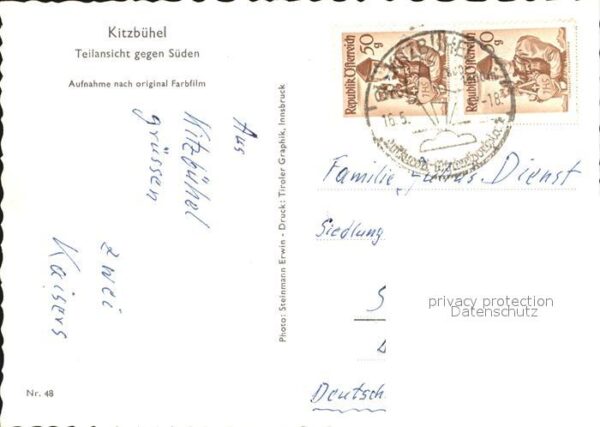 Kitzbühel
Teilansicht gegen Süden
Aufnahme nach original Farbfilm
Aus
Kitzbühel
grüssen
zwei
Kaisers
Nr. 48
Photo: Steinmann Erwin - Druck: Tiroler Graphik, Innsbruck
50 g
Republik Österreich
50 g
Republik Österreich
KITZBÜHEL
16.5.
-18
Familie Dienst
Siedlung
S
privacy protection
Datenschutz
Deutsch